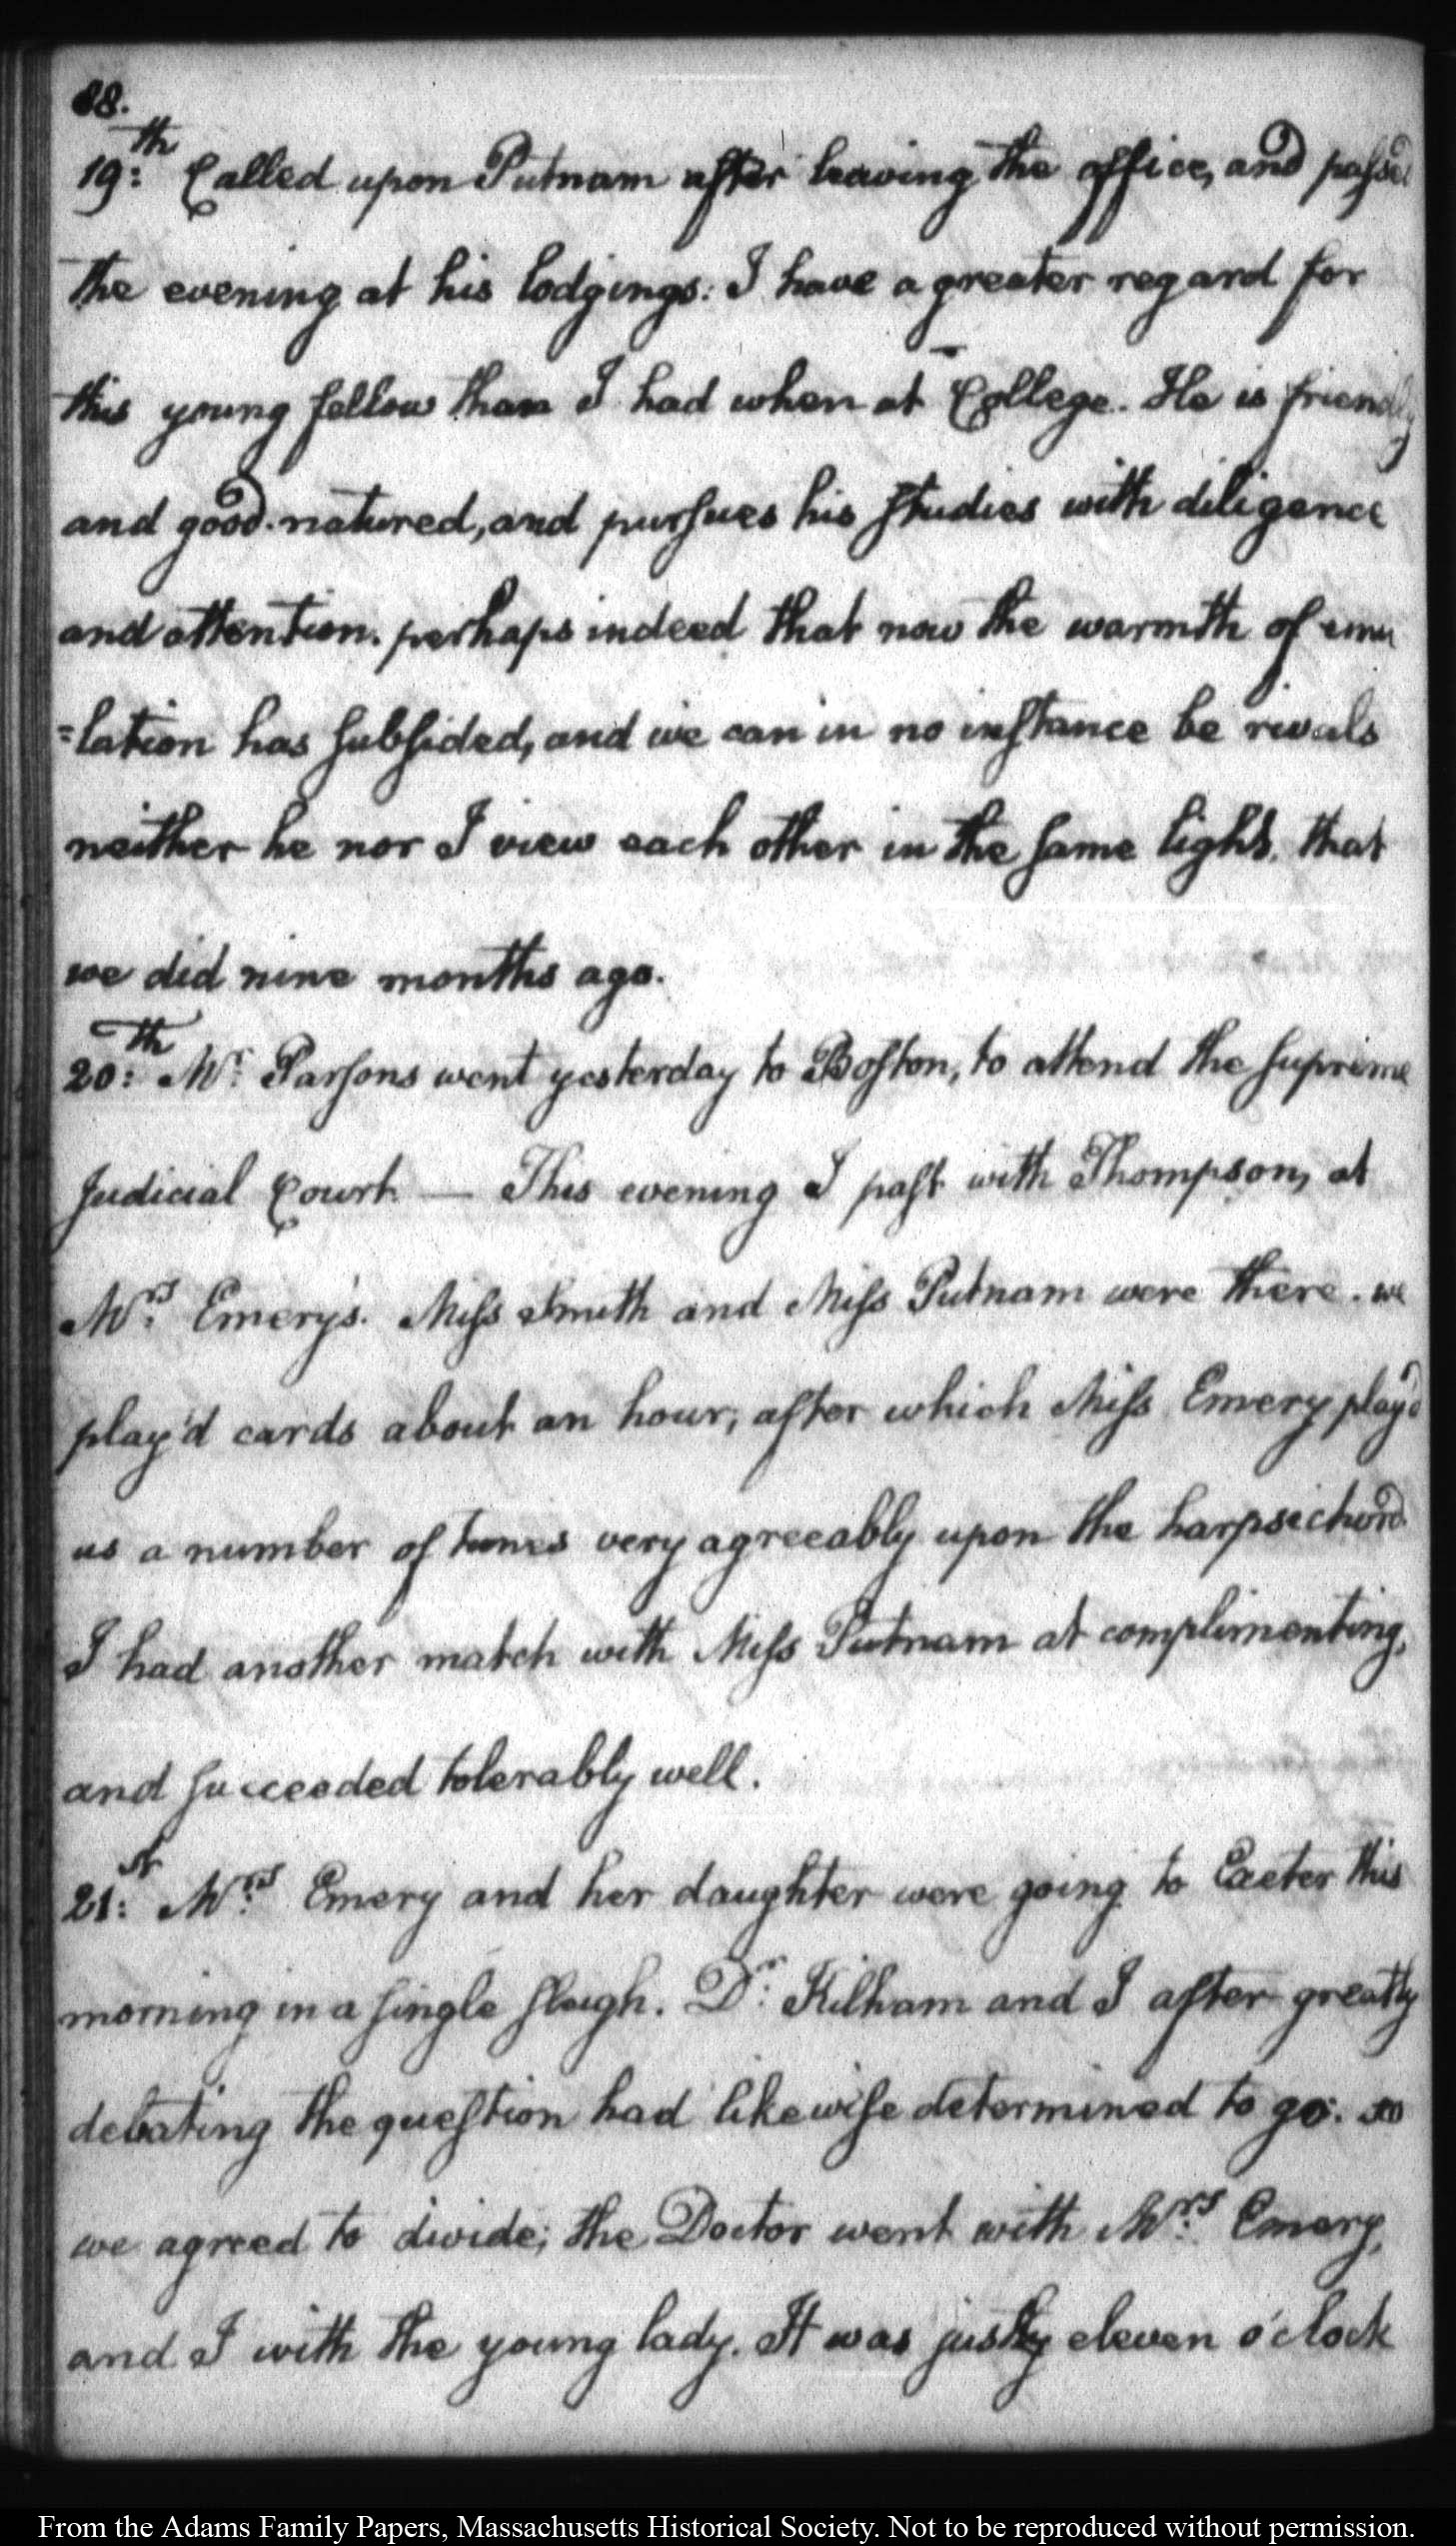 88.
19:th Called upon Putnam after leaving the office, and passed
the evening at his lodgings: I have a greater regard for
this young fellow than I had when at College. He is friendly
and good-natured, and pursues his studies with diligence
and attention. perhaps indeed that now the warmth of emu
=lation has subsided, and we can in no instance be rivals
neither he nor I view each other in the same light, that
we did nine months ago.
20:th Mr: Parsons went yesterday to Boston, to attend the supreme
Judicial Court. — This evening I past with Thompson, at
Mrs: Emery's. Miss Smith and Miss Putnam were there. we
play'd cards about an hour; after which Miss Emery play'd
us a number of tunes very agreeably upon the harpsichord.
I had another match with Miss Putnam at complimenting,
and succeeded tolerably well.
21:st Mrs: Emery and her daughter were going to Exeter this
morning in a single sleigh. Dr: Kilham and I after greatly
debating the question had likewise determined to go: so
we agreed to divide; the Doctor went with Mrs: Emery,
and I with the young lady. It was just eleven o'clock
From the Adams Family Papers, Massachusetts Historical Society. Not to be reproduced without permission.